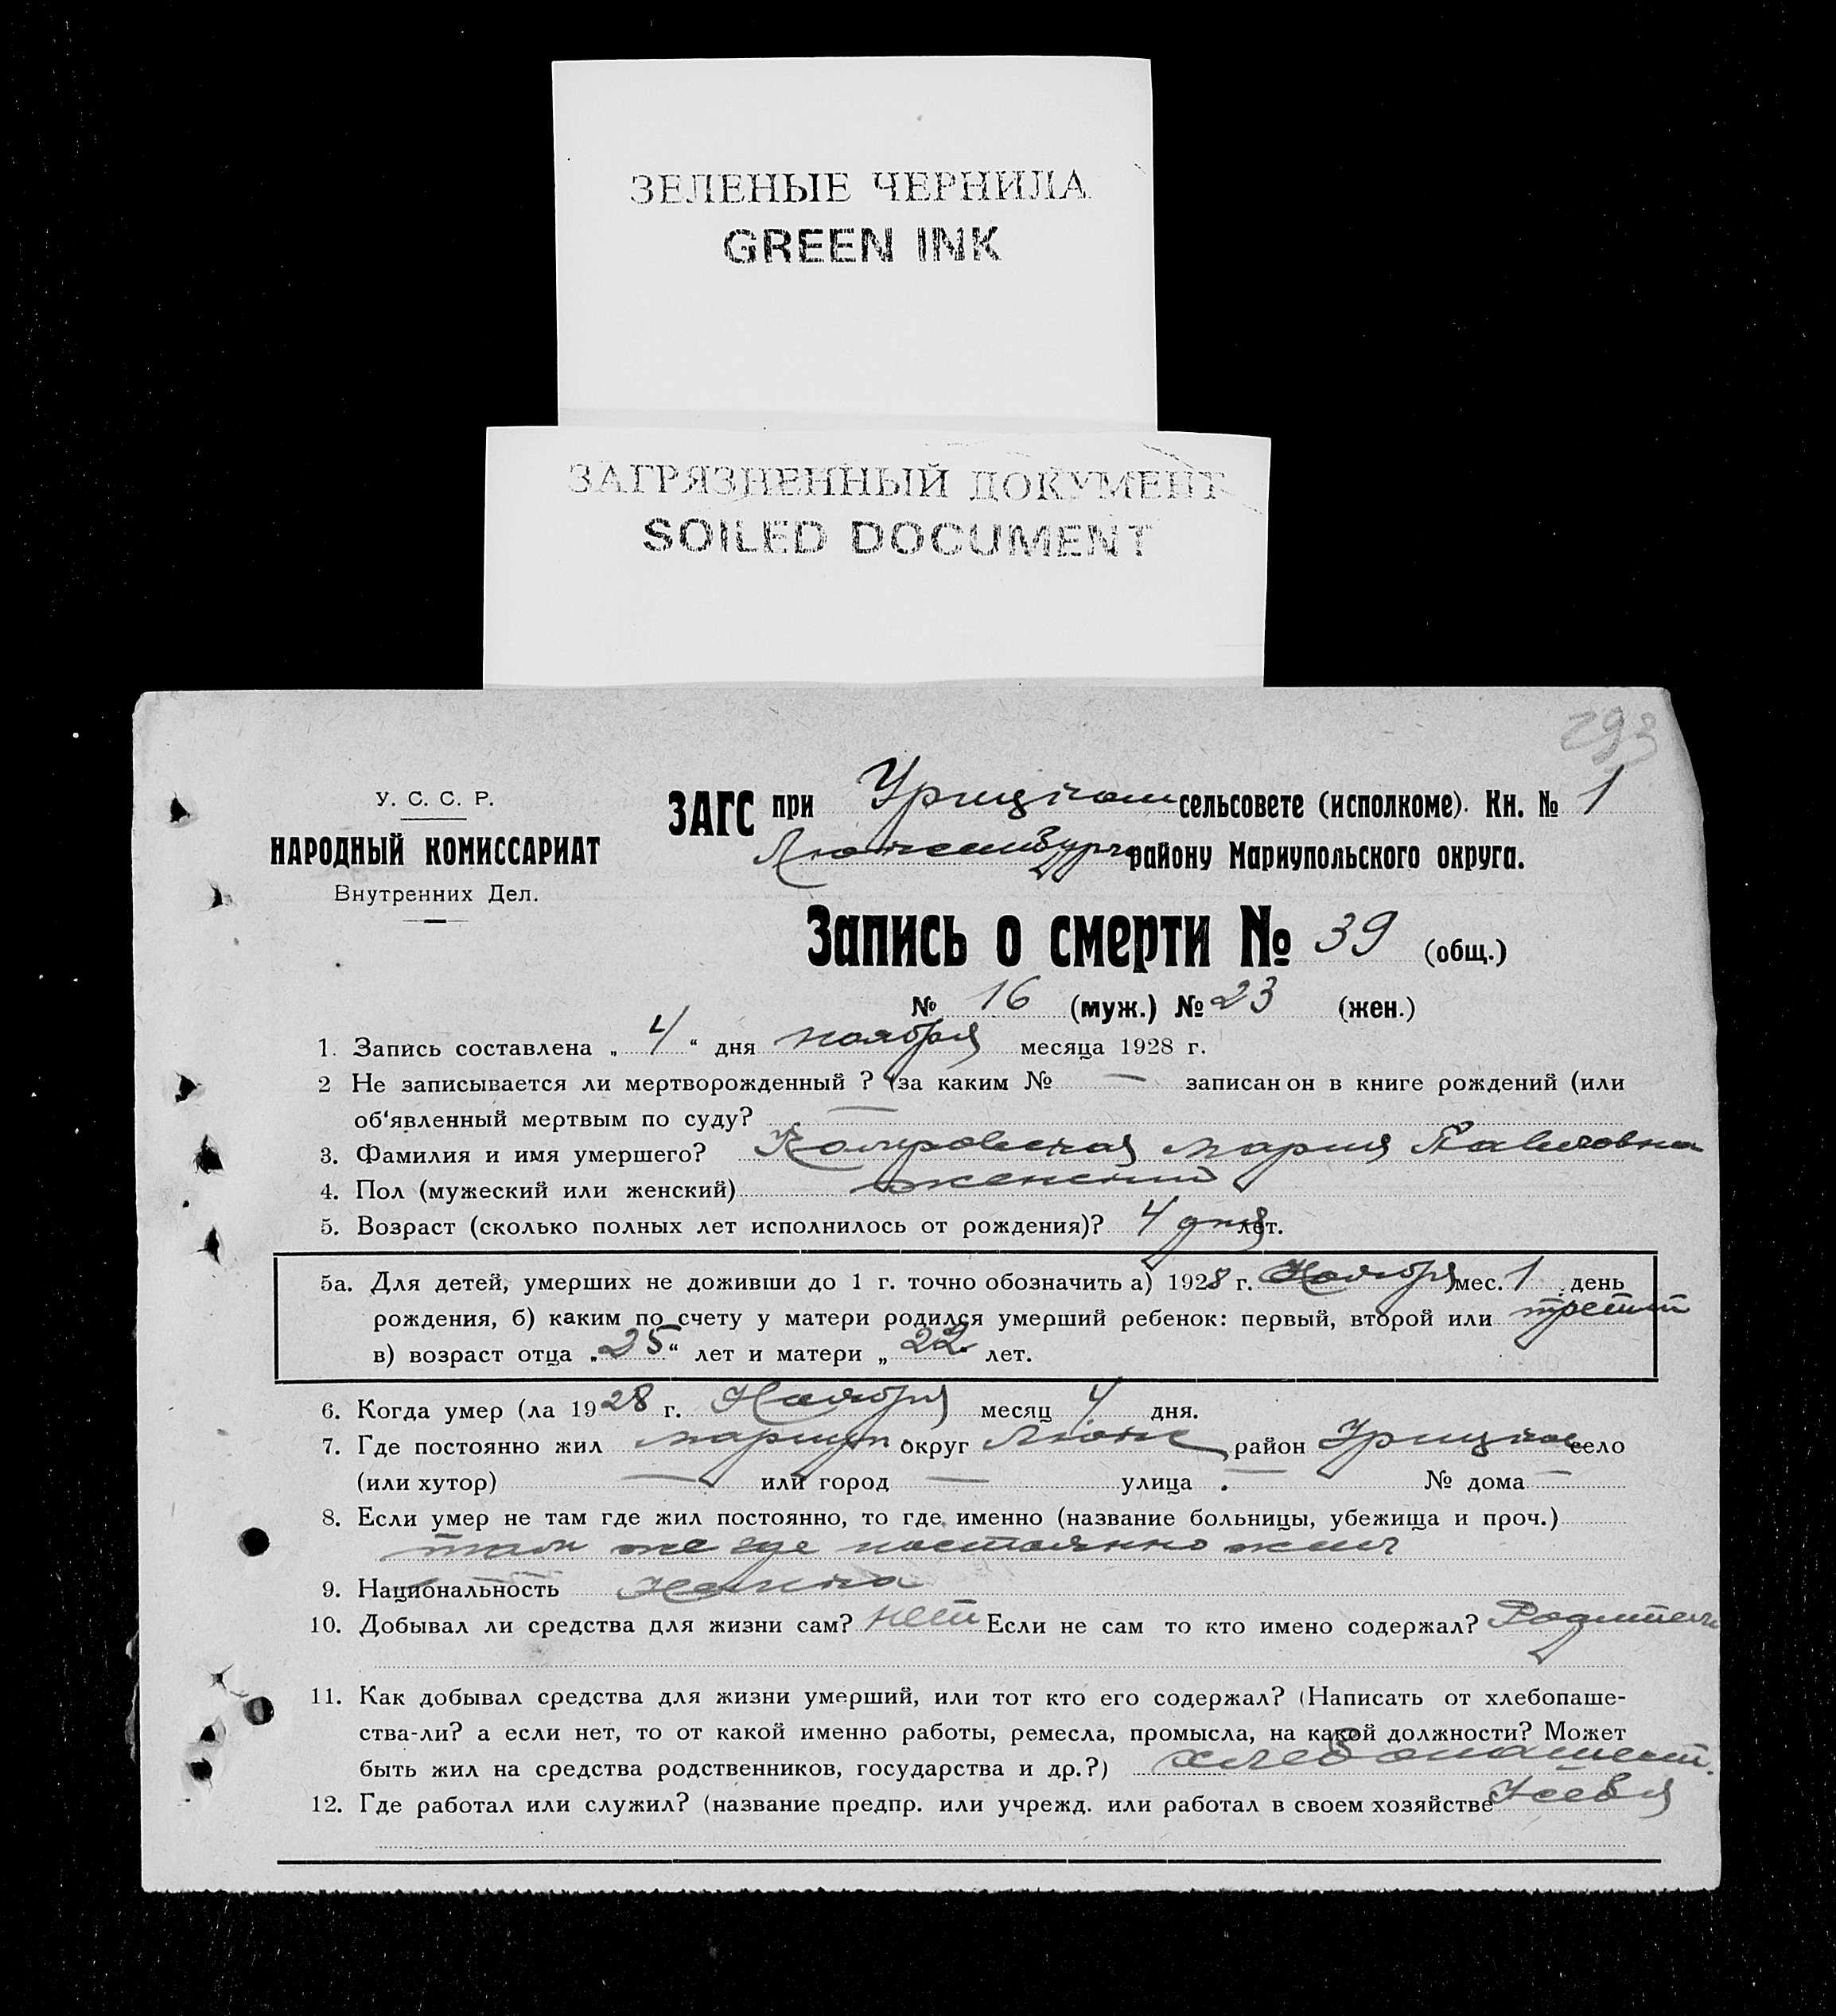 ЗЕЛЕНЫЕ ЧЕРНИЛА
GREEN INK
ЗАГРЯЗНЕННЫЙ ДОКУМЕНТ
SOILED DOCUMENT
293
У. С. С. Р.
НАРОДНЫЙ КОМИССАРИАТ
Внутренних Дел.
ЗАГС при Урицком сельсовете (исполкоме). Кн. № 1
Люксембург району Мариупольского округа.
Запись о смерти № 39 (общ.)
№ 16 (муж.) № 23 (жен.)
1. Запись составлена „ 4 “ дня ноября месяца 1928 г.
2 Не записывается ли мертворожденный ? (за каким № — записан он в книге рождений (или
об‘явленный мертвым по суду? —
3. Фамилия и имя умершего? Мария Павловна
4. Пол (мужеский или женский) женский
5. Возраст (сколько полных лет исполнилось от рождения)? 4 дня лет.
5а. Для детей, умерших не доживши до 1 г. точно обозначить а) 1928 г. Ноября мес. 1 день
рождения, б) каким по счету у матери родился умерший ребенок: первый, второй или третий
в) возраст отца „ 25 “ лет и матери „ 22 лет.
6. Когда умер (ла 1928 г. Ноября месяц 4 дня.
7. Где постоянно жил мариуп округ Люкс район Урицкое село
(или хутор) — или город — улица . — № дома —
8. Если умер не там где жил постоянно, то где именно (название больницы, убежища и проч.)
там же где постоянно жил
9. Национальность Немка
10. Добывал ли средства для жизни сам? нет Если не сам то кто имено содержал? Родители
11. Как добывал средства для жизни умерший, или тот кто его содержал? (Написать от хлебопаше-
ства-ли? а если нет, то от какой именно работы, ремесла, промысла, на какой должности? Может
быть жил на средства родственников, государства и др.?) хлебопашест.
12. Где работал или служил? (название предпр. или учрежд. или работал в своем хозяйстве У себя